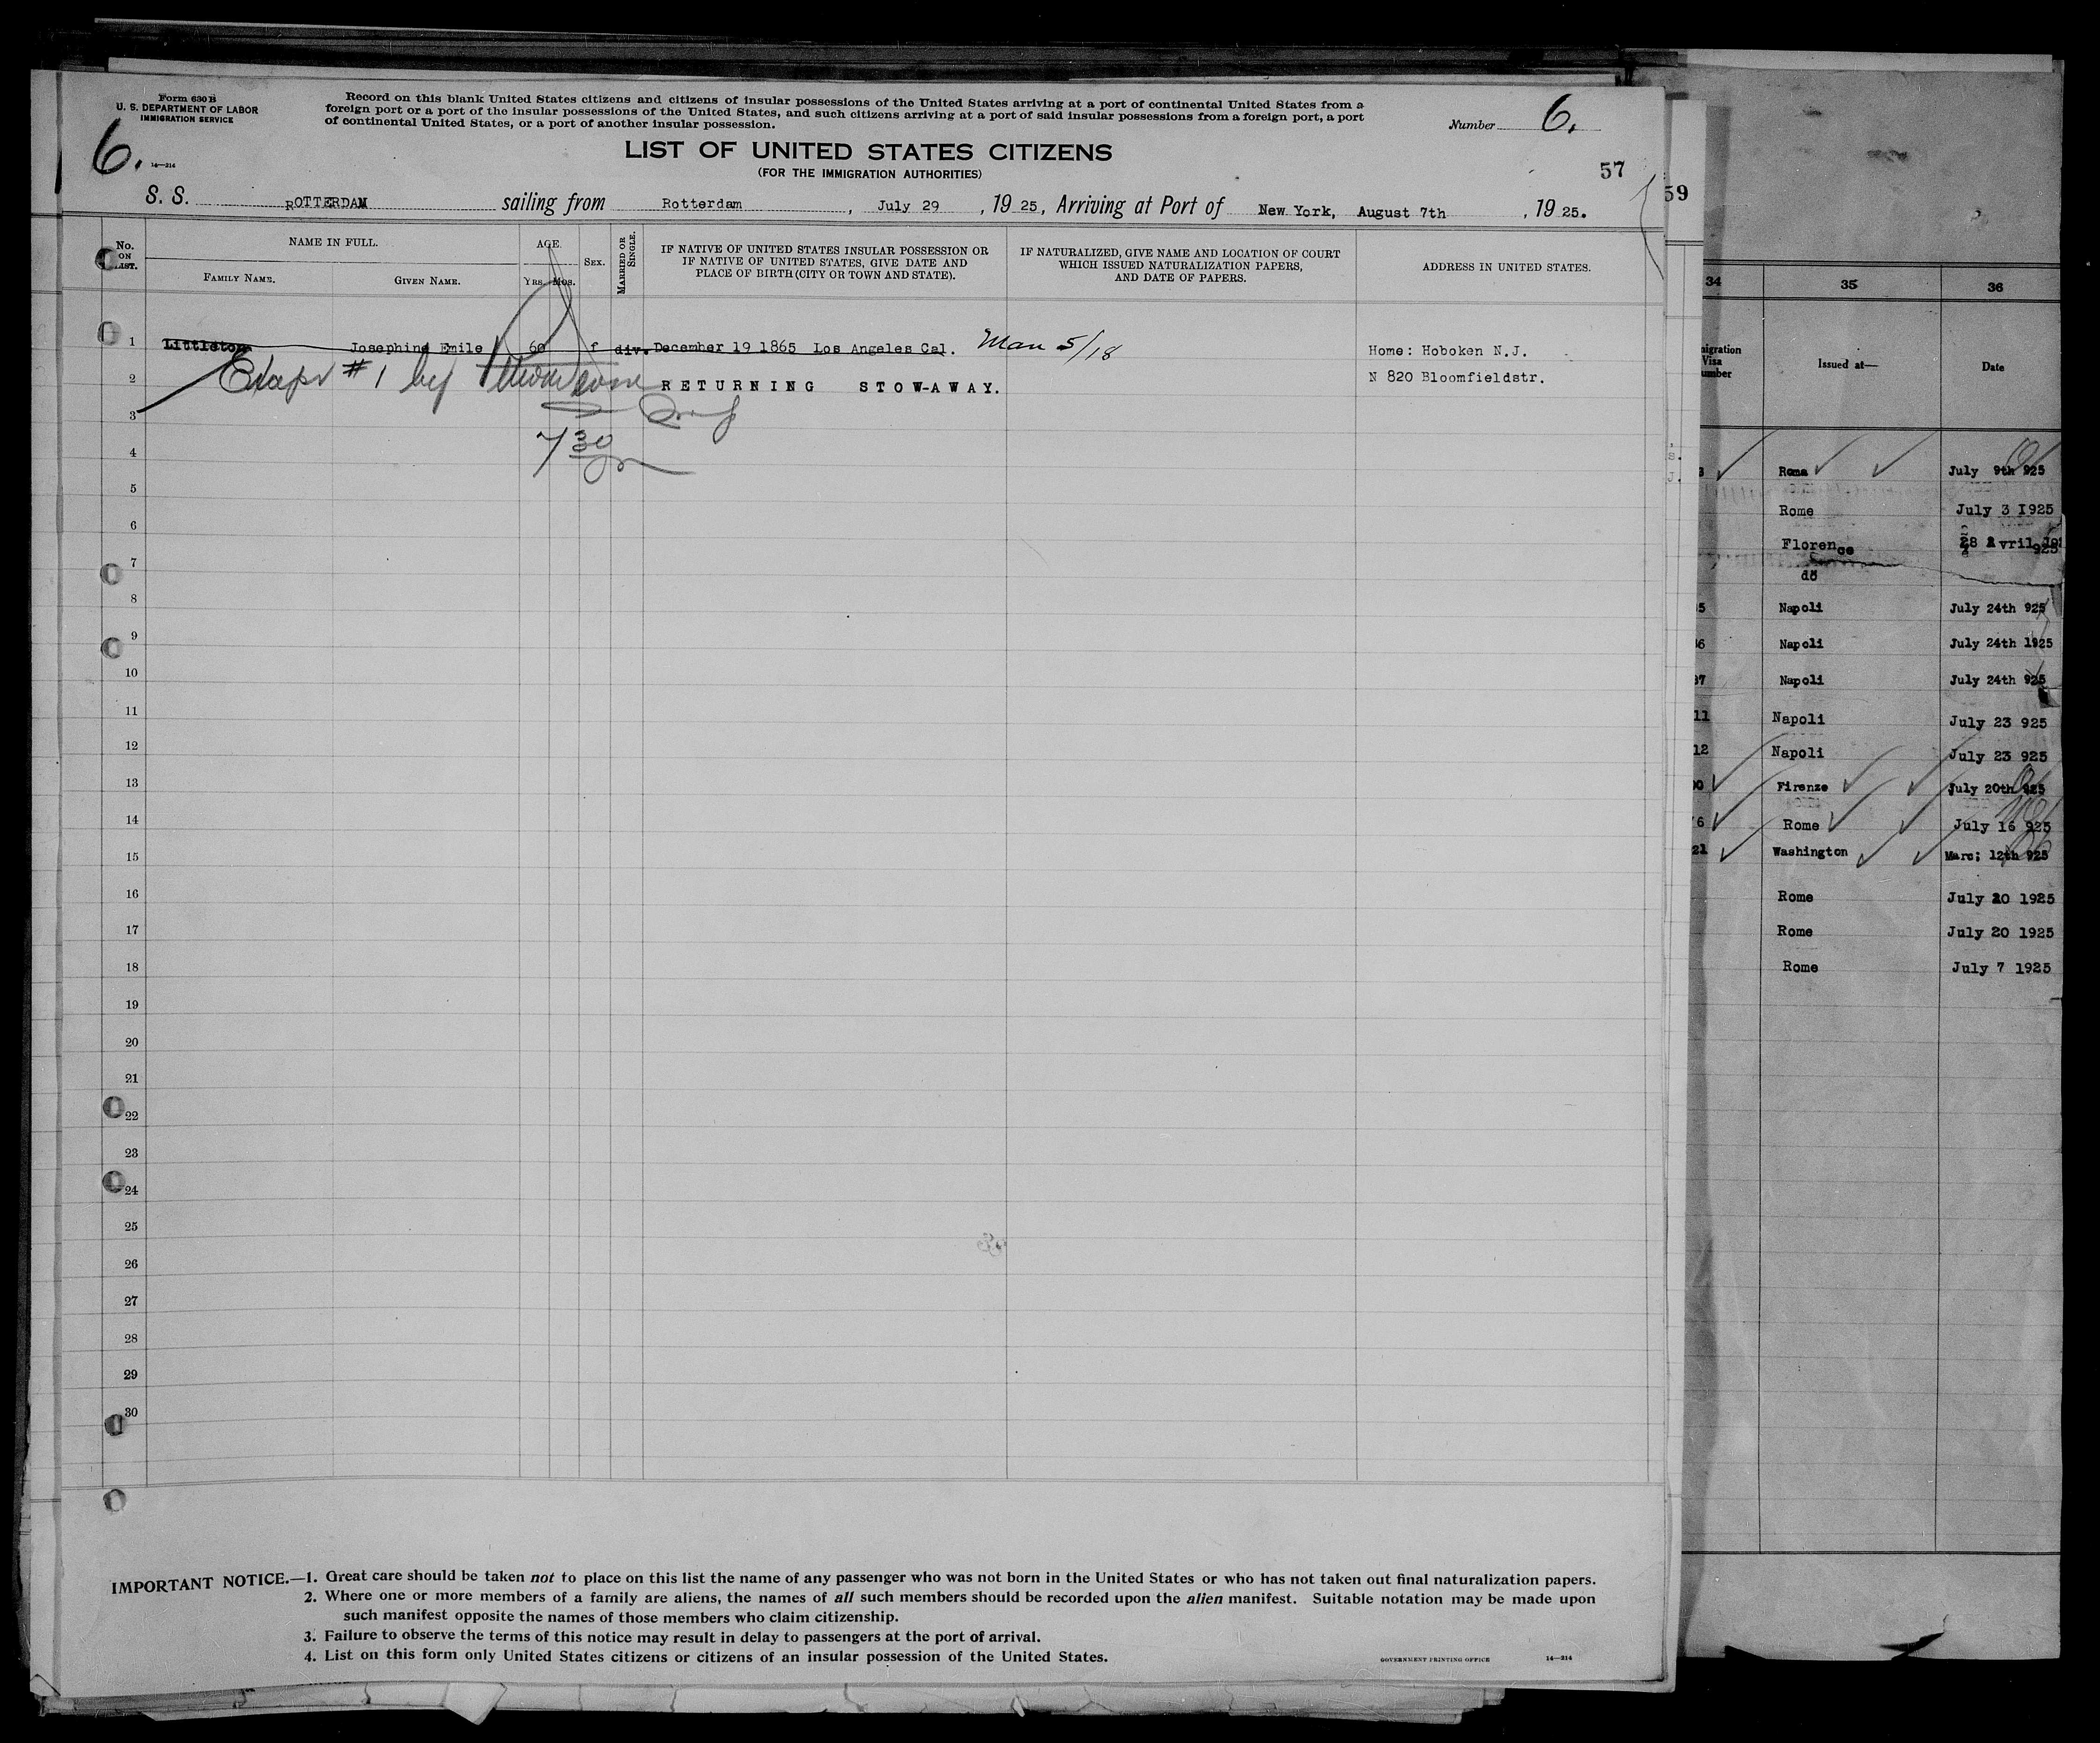 Form 630 B
U. S. DEPARTMENT OF LABOR
IMMIGRATION SERVICE
6.
14—214
Record on this blank United States citizens and citizens of insular possessions of the United States arriving at a port of continental United States from a
foreign port or a port of the insular possessions of the United States, and such citizens arriving at a port of said insular possessions from a foreign port, a port
of continental United States, or a port of another insular possession.
Number 6.
LIST OF UNITED STATES CITIZENS
(FOR THE IMMIGRATION AUTHORITIES)
57
S. S. ROTTERDAM sailing from Rotterdam, July 29, 1925, Arriving at Port of New York, August 7th, 1925.
No. ON LIST.
NAME IN FULL.
FAMILY NAME.
GIVEN NAME.
AGE.
YRS. MOS.
SEX.
MARRIED OR SINGLE.
IF NATIVE OF UNITED STATES INSULAR POSSESSION OR
IF NATIVE OF UNITED STATES, GIVE DATE AND
PLACE OF BIRTH (CITY OR TOWN AND STATE).
IF NATURALIZED, GIVE NAME AND LOCATION OF COURT
WHICH ISSUED NATURALIZATION PAPERS,
AND DATE OF PAPERS.
ADDRESS IN UNITED STATES.
1 Littleton Josephine Emile 60 f div. December 19 1865 Los Angeles Cal. 5/18 Home: Hoboken N.J.
2 #1 by RETURNING STOW-AWAY. N 820 Bloomfieldstr.
3
4 7 30
5
6
7
8
9
10
11
12
13
14
15
16
17
18
19
20
21
22
23
24
25
26
27
28
29
30
IMPORTANT NOTICE.—1. Great care should be taken not to place on this list the name of any passenger who was not born in the United States or who has not taken out final naturalization papers.
2. Where one or more members of a family are aliens, the names of all such members should be recorded upon the alien manifest. Suitable notation may be made upon
such manifest opposite the names of those members who claim citizenship.
3. Failure to observe the terms of this notice may result in delay to passengers at the port of arrival.
4. List on this form only United States citizens or citizens of an insular possession of the United States.
GOVERNMENT PRINTING OFFICE 14—214
59
34 35 36
Visa Issued at— Date
Roma July 9th 925
Rome July 3 1925
Florence 28 Avril 925
dö
Napoli July 24th 925
Napoli July 24th 1925
Napoli July 24th 925
11 Napoli July 23 925
12 Napoli July 23 925
Firenze July 20th 925
6 Rome July 16 925
21 Washington Marc; 12th 925
Rome July 20 1925
Rome July 20 1925
Rome July 7 1925